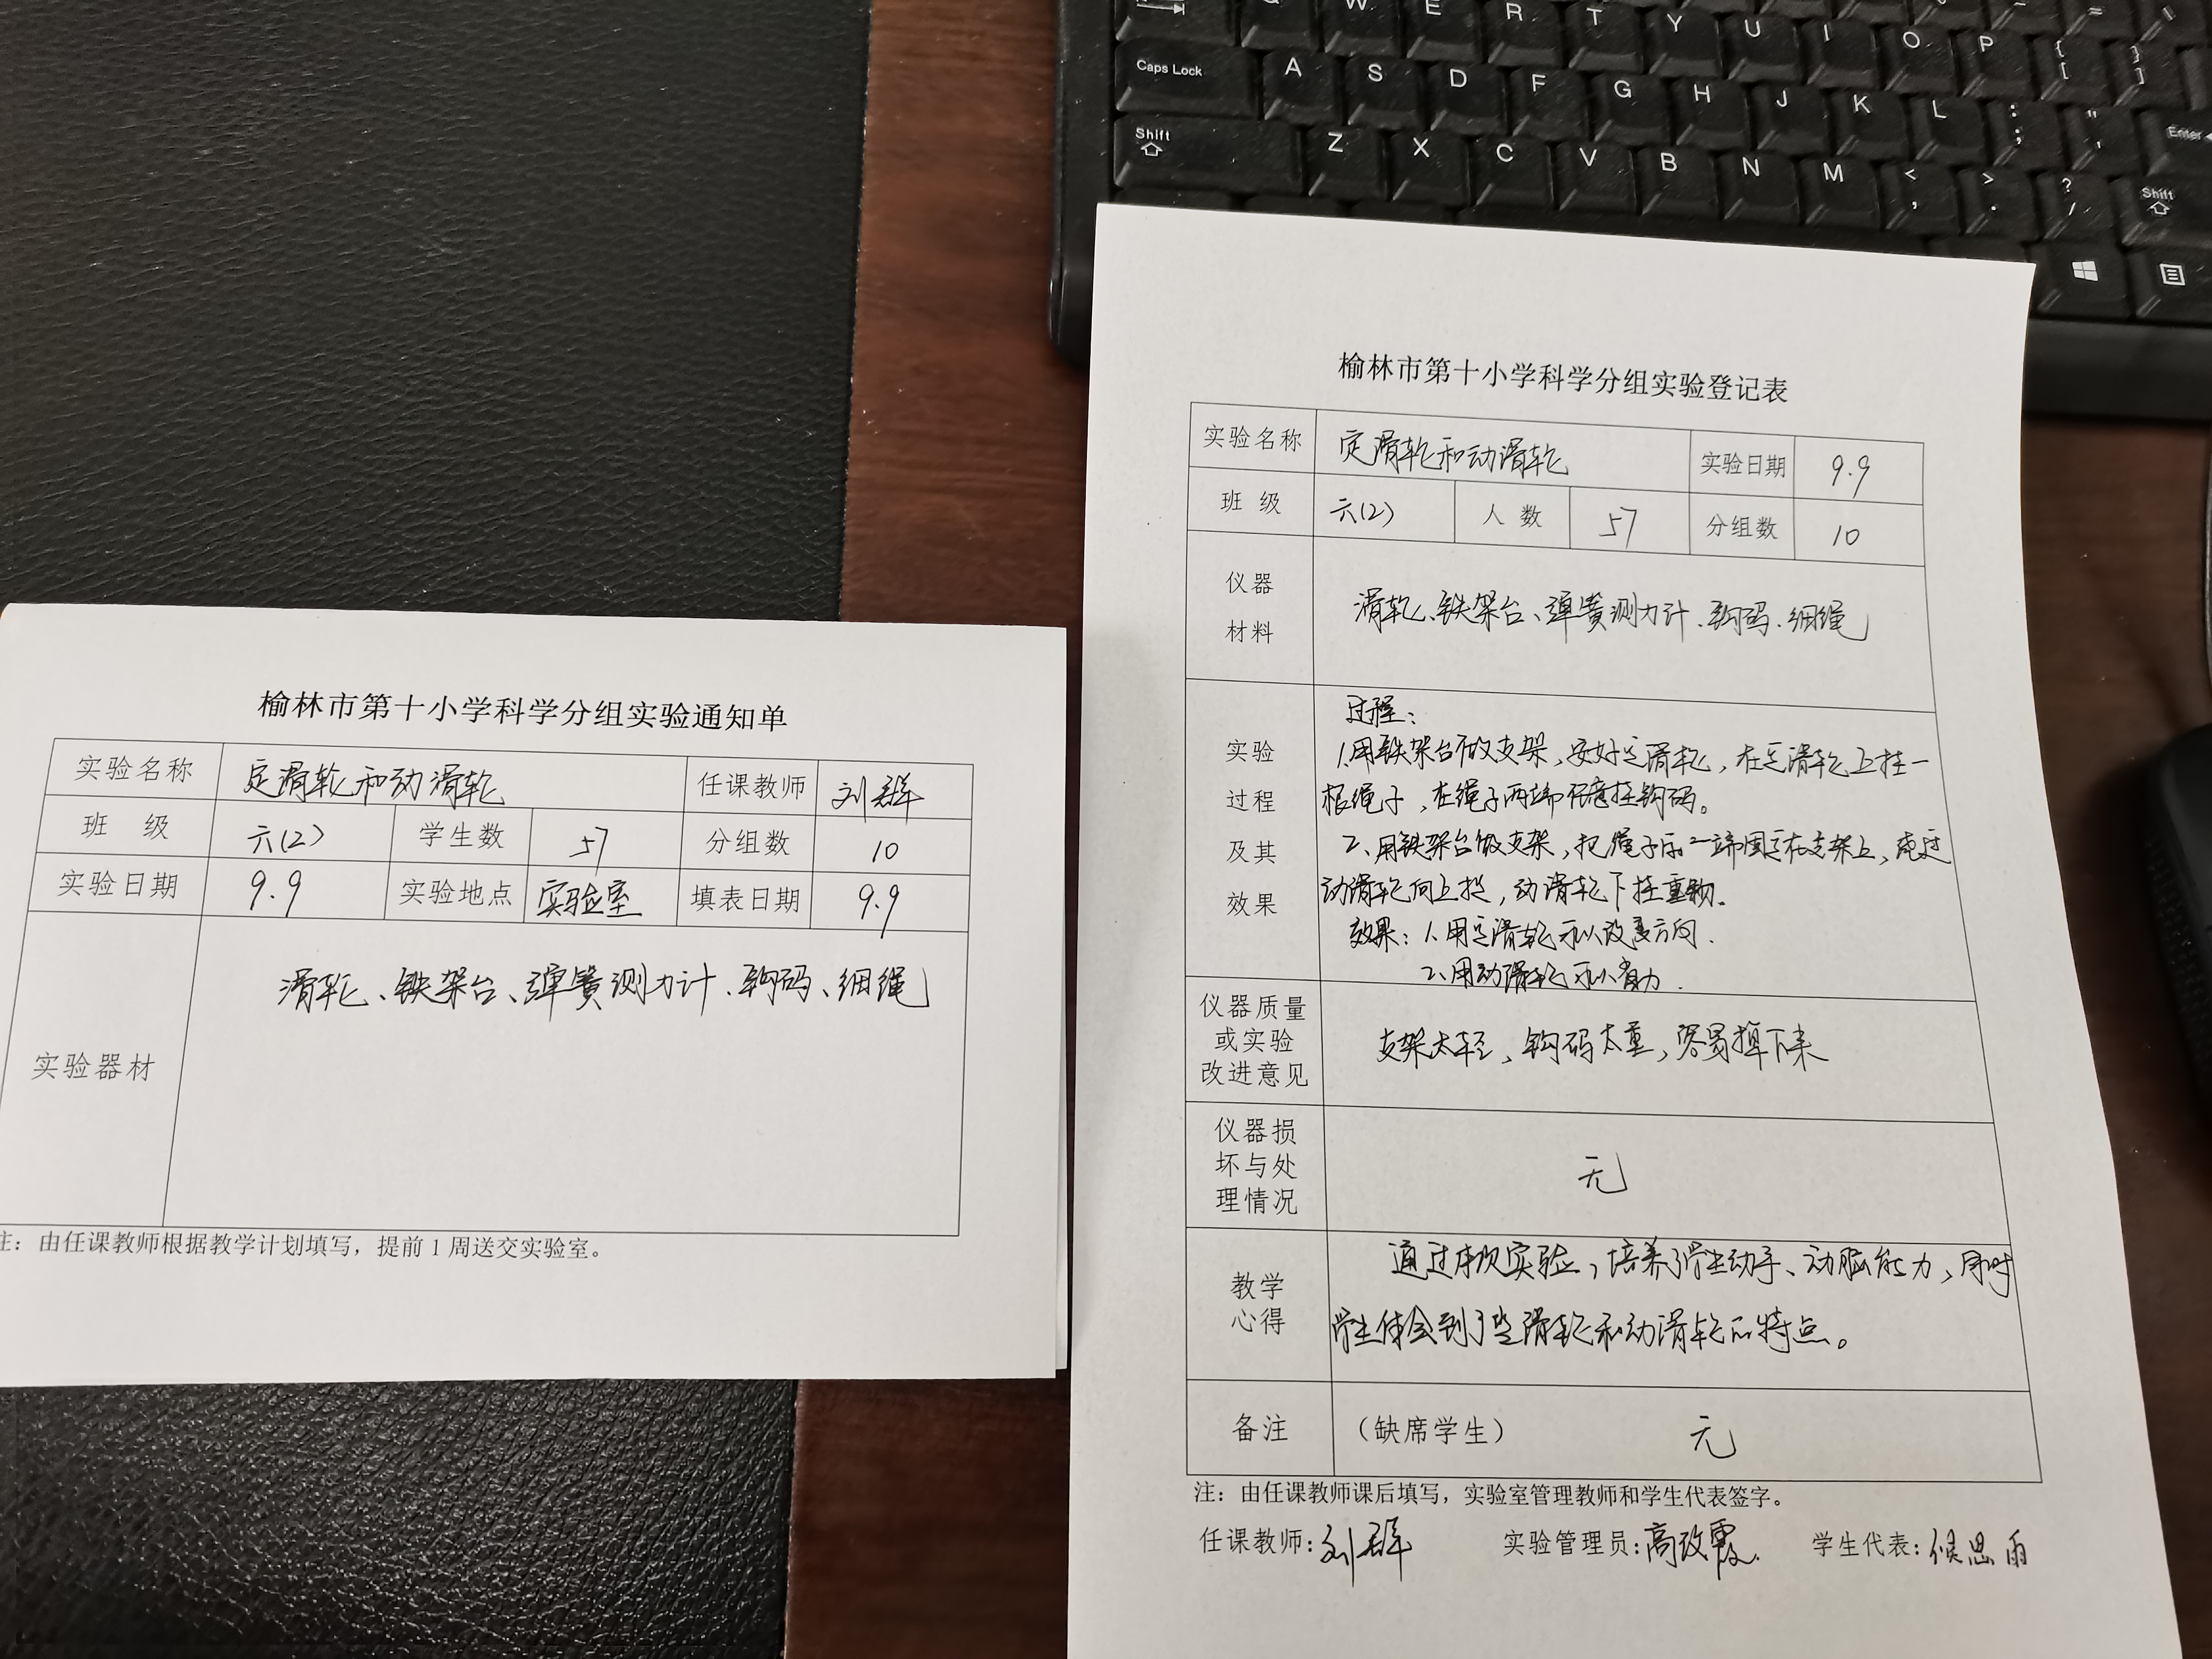 Q W E R T Y U I O P { [ } ]
Caps Lock A S D F G H J K L : ; " ' Enter
Shift Z X C V B N M < , > . ? / Shift
榆林市第十小学科学分组实验通知单
实验名称 定滑轮和动滑轮 任课教师 刘群
班 级 六(2) 学生数 57 分组数 10
实验日期 9.9 实验地点 实验室 填表日期 9.9
实验器材 滑轮、铁架台、弹簧测力计、钩码、细绳
注：由任课教师根据教学计划填写，提前1周送交实验室。
榆林市第十小学科学分组实验登记表
实验名称 定滑轮和动滑轮 实验日期 9.9
班 级 六(2) 人 数 57 分组数 10
仪器
材料
滑轮、铁架台、弹簧测力计、钩码、细绳
实验
过程
及其
效果
过程：
1.用铁架台做支架，安好定滑轮，在定滑轮上挂一
根绳子，在绳子两端任意挂钩码。
2、用铁架台做支架，把绳子的一端固定在支架上，绕过
动滑轮向上拉，动滑轮下挂重物。
效果：1.用定滑轮可以改变方向.
2、用动滑轮可以省力.
仪器质量
或实验
改进意见
支架太轻，钩码太重，容易掉下来
仪器损
坏与处
理情况
无
教学
心得
通过本次实验，培养了学生动手、动脑能力，同时
学生体会到了定滑轮和动滑轮的特点。
备注 （缺席学生） 无
注：由任课教师课后填写，实验室管理教师和学生代表签字。
任课教师：刘群 实验管理员：高改霞 学生代表：候思雨